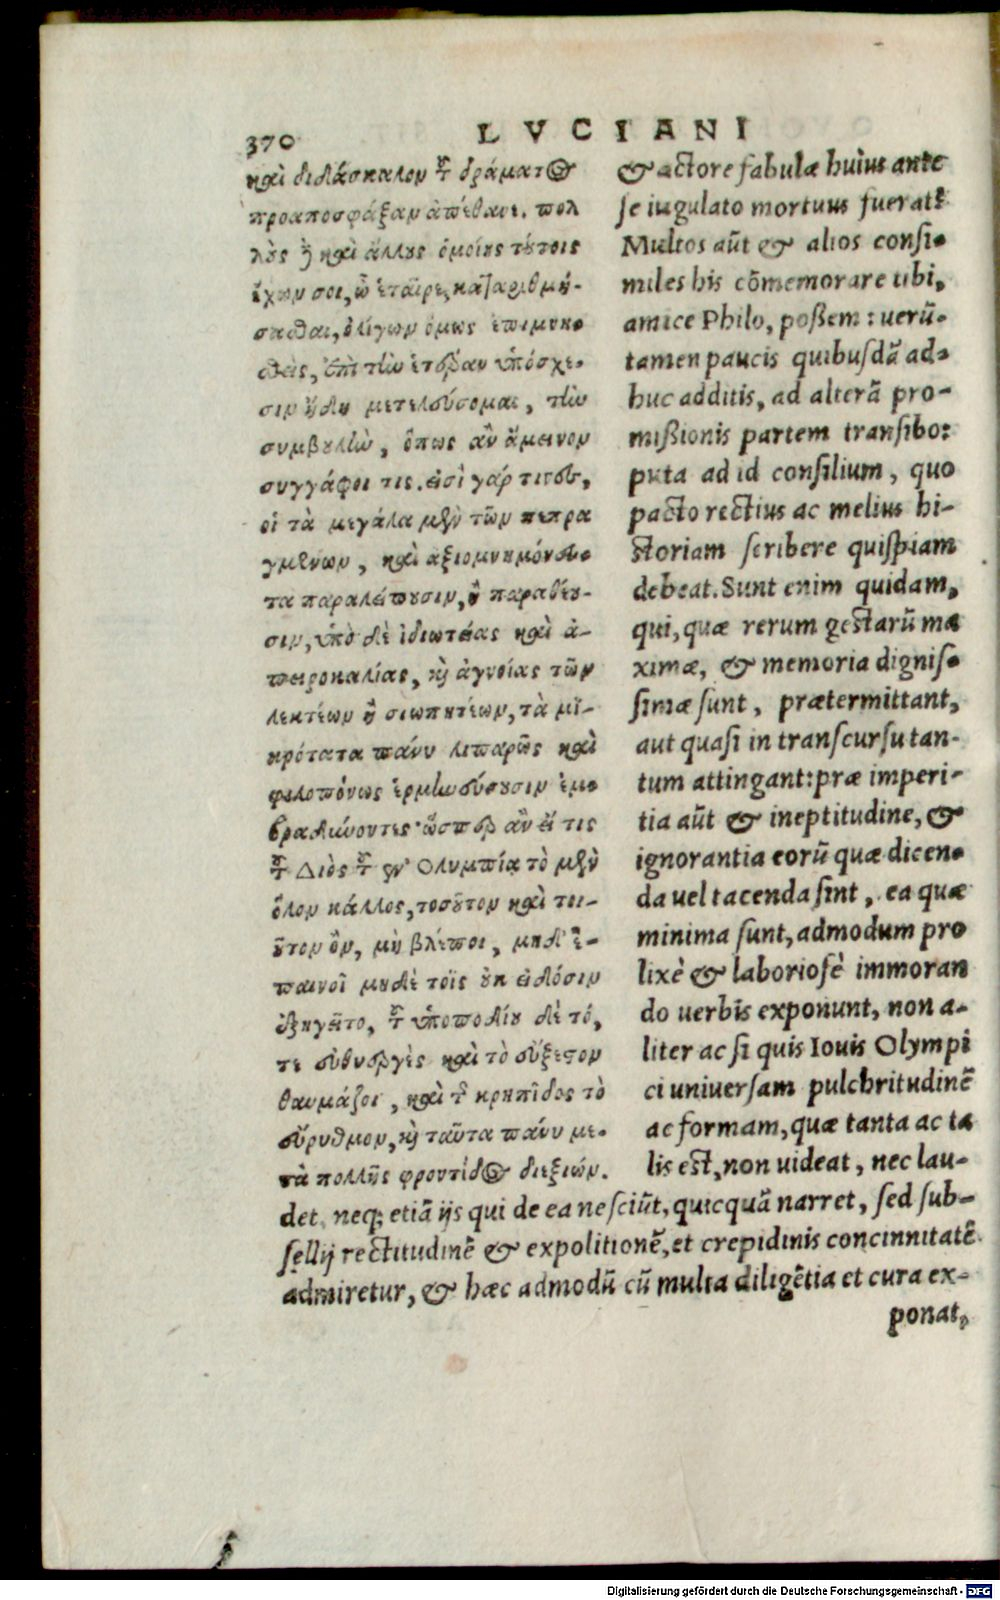 370 LVCIANI
καὶ διδάσκαλον τοῦ δράματος
προαποσφάξαν ἀπέθανε. πολ
λοὺς δὲ καὶ ἄλλους ὁμοίους τούτοις
ἔχων σοι, ὦ ἑταῖρε, καταριθμή-
σασθαι, ὀλίγων ὅμως ἐπιμνη-
σθεὶς, ἐπὶ τὴν ἑτέραν ὑπόσχε-
σιν ἤδη μετελεύσομαι, τὴν
συμβουλὴν, ὅπως ἂν ἄμεινον
συγγράφοι τις. εἰσὶ γάρ τινες,
οἳ τὰ μεγάλα μὲν τῶν πεπρα
γμένων, καὶ ἀξιομνημόνευ-
τα παραλείπουσιν, ἢ παραθέου-
σιν, ὑπὸ δὲ ἰδιωτείας καὶ ἀ-
πειροκαλίας, καὶ ἀγνοίας τῶν
λεκτέων ἢ σιωπητέων, τὰ μι-
κρότατα πάνυ λιπαρῶς καὶ
φιλοπόνως ἑρμηνεύουσιν ἐμ-
βραδύνοντες· ὥσπερ ἂν εἴ τις
τοῦ Διὸς τοῦ ἐν Ὀλυμπίᾳ τὸ μὲν
ὅλον κάλλος, τοσοῦτον καὶ τοι-
οῦτον ὂν, μὴ βλέποι, μηδ' ἐ-
παινοῖ μηδὲ τοῖς οὐκ εἰδόσιν
ἐξηγεῖτο, τοῦ ὑποποδίου δὲ τό,
τε εὐθυεργὲς καὶ τὸ εὔξεστον
θαυμάζοι, καὶ τῆς κρηπῖδος τὸ
εὔρυθμον, καὶ ταῦτα πάνυ με-
τὰ πολλῆς φροντίδος διεξιών.
& actore fabulæ huius ante
se iugulato mortuus fuerat:
Multos aūt & alios consi-
miles his cōmemorare tibi,
amice Philo, poßem: uerū-
tamen paucis quibusdā ad-
huc additis, ad alterā pro-
mißionis partem transibo:
puta ad id consilium, quo
pacto rectius ac melius hi-
storiam scribere quispiam
debeat. Sunt enim quidam,
qui, quæ rerum gestarū ma
ximæ, & memoria dignis-
simæ sunt, prætermittant,
aut quasi in transcursu tan-
tum attingant: præ imperi-
tia aūt & ineptitudine, &
ignorantia eorū quæ dicen-
da uel tacenda sint, ea quæ
minima sunt, admodum pro
lixè & laboriosè immoran
do uerbis exponunt, non a-
liter ac si quis Iouis Olympi
ci uniuersam pulchritudinē
ac formam, quæ tanta ac ta
lis est, non uideat, nec lau-
det, neq; etiā ijs qui de ea nesciūt, quicquā narret, sed sub-
sellij rectitudinē & expolitionē, et crepidinis concinnitatē
admiretur, & hæc admodū cū multa diligētia et cura ex-
ponat,
Digitalisierung gefördert durch die Deutsche Forschungsgemeinschaft - DFG